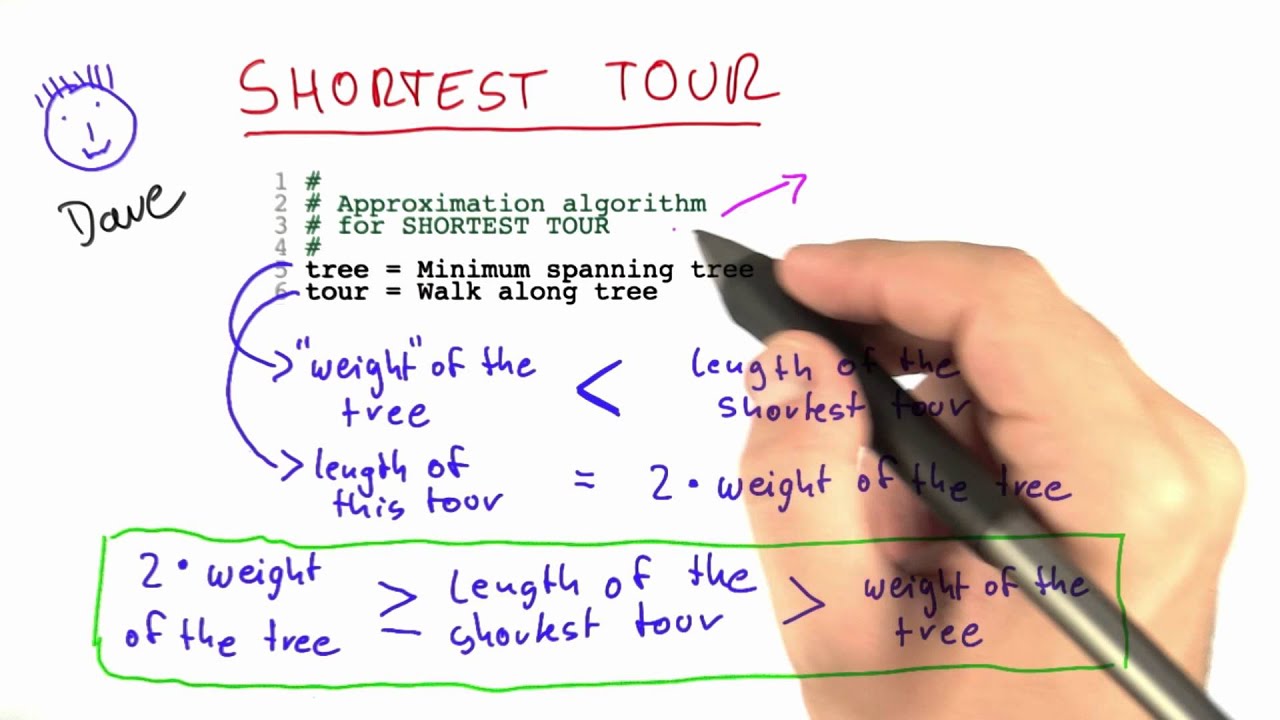 SHORTEST TOUR
Dave
1 #
2 # Approximation algorithm
3 # for SHORTEST TOUR
4 #
5 tree = Minimum spanning tree
6 tour = Walk along tree
"weight" of the < length of the
tree shortest tour
length of = 2 · weight of the tree
this tour
2 · weight ≥ length of the > weight of the
of the tree shortest tour tree